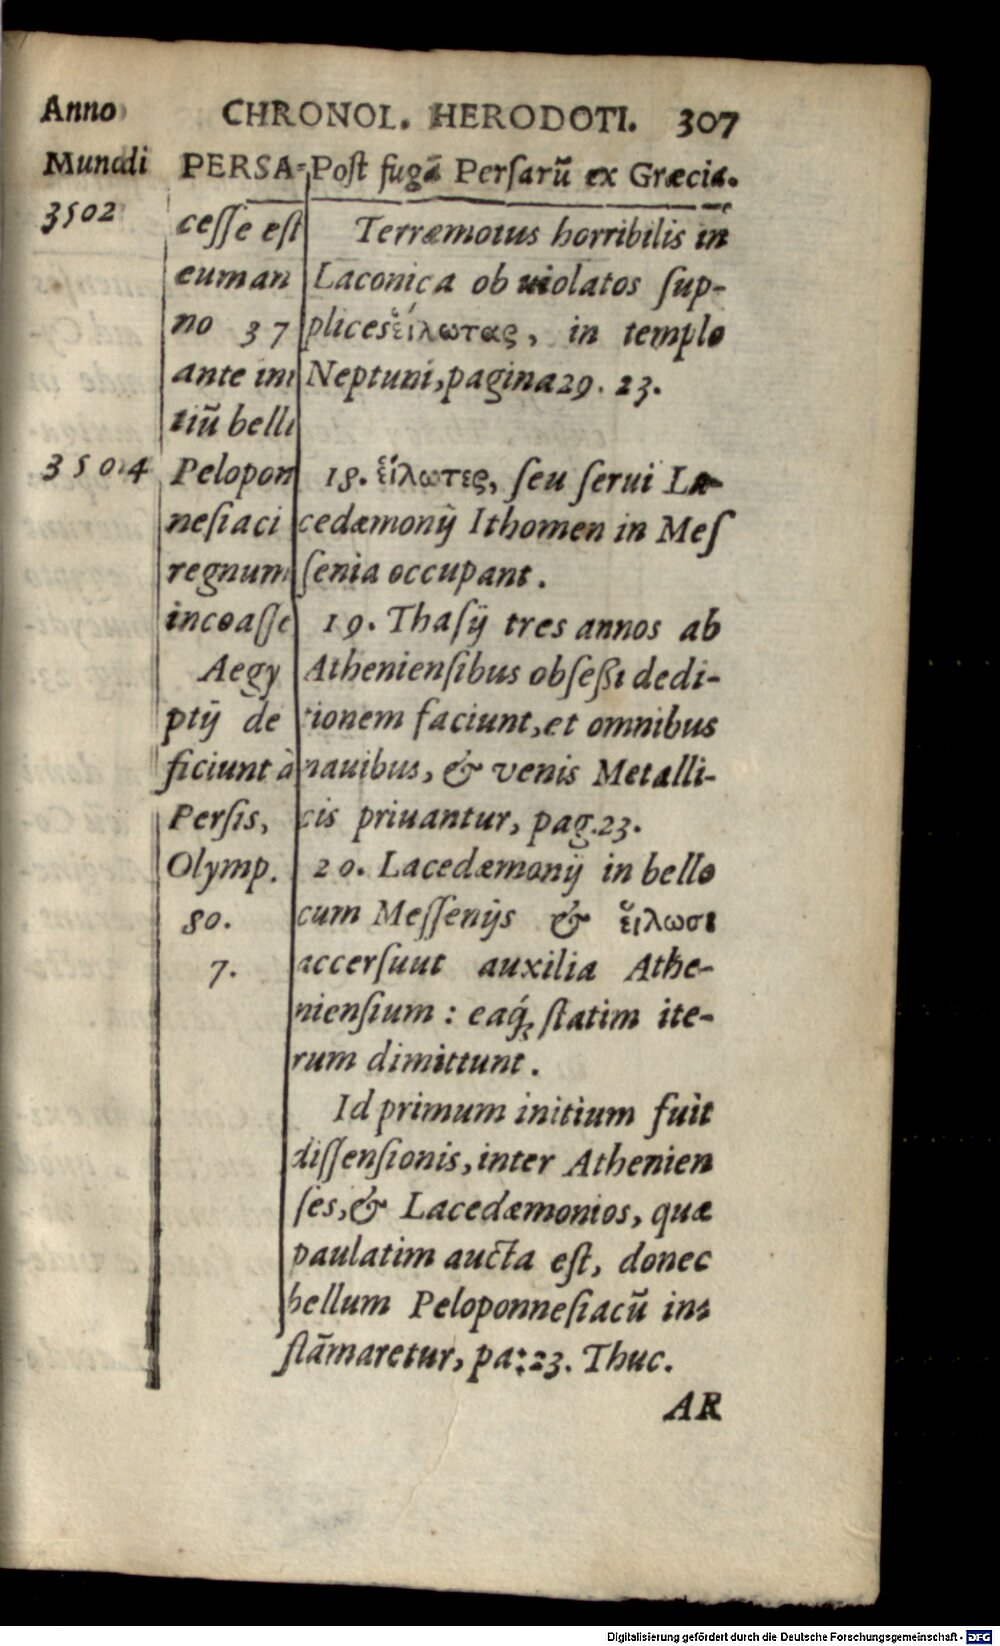 Anno
Mundi
3502
3504
CHRONOL. HERODOTI. 307
PERSA-
ceſſe eſt
eum an
no 37
ante ini
tiū belli
Pelopon
neſiaci
regnum
incoaſſe
Aegy
ptij de
ficiunt à
Perſis,
Olymp.
80.
7.
Poſt fugā Perſarū ex Græcia.
Terræmotus horribilis in
Laconica ob uiolatos ſup-
plices εἵλωτας, in templo
Neptuni, pagina 29. 23.
18. εἵλωτες, ſeu ſerui La-
cedæmonij Ithomen in Meſ
ſenia occupant.
19. Thaſij tres annos ab
Athenienſibus obſeßi dedi-
tionem faciunt, et omnibus
nauibus, & venis Metalli-
cis priuantur, pag. 23.
20. Lacedæmonij in bello
cum Meſſenijs & εἵλωσι
accerſuut auxilia Athe-
nienſium : eaq́ꝫ ſtatim ite-
rum dimittunt.
Id primum initium fuit
diſſenſionis, inter Athenien
ſes, & Lacedæmonios, quæ
paulatim aucta eſt, donec
bellum Peloponneſiacū in-
ſtāmaretur, pa: 23. Thuc.
AR
Digitalisierung gefördert durch die Deutsche Forschungsgemeinschaft - DFG